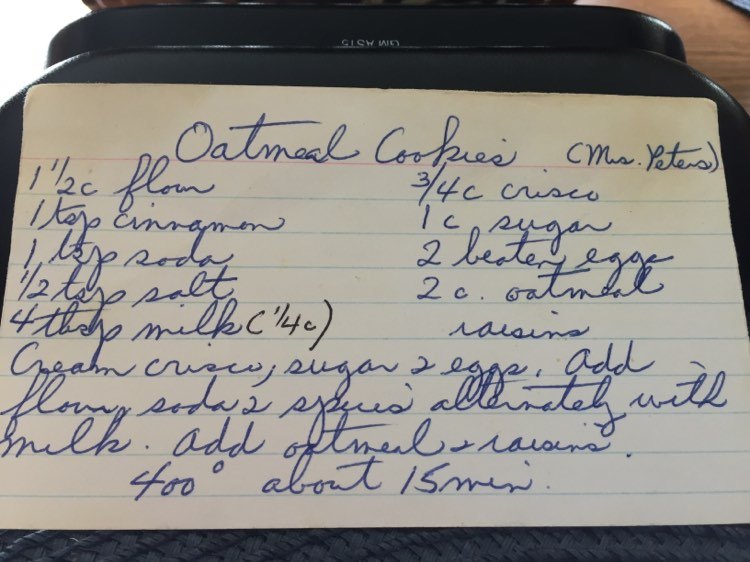 Oatmeal Cookies (Mrs. Peters)
1 1/2 c flour
1 tsp cinnamon
1 tsp soda
1/2 tsp salt
4 tbsp milk (1/4 c)
3/4 c crisco
1 c sugar
2 beaten eggs
2 c. oatmeal
raisins
Cream crisco, sugar & eggs. Add
flour, soda & spices alternately with
milk. Add oatmeal & raisins.
400° about 15 min.